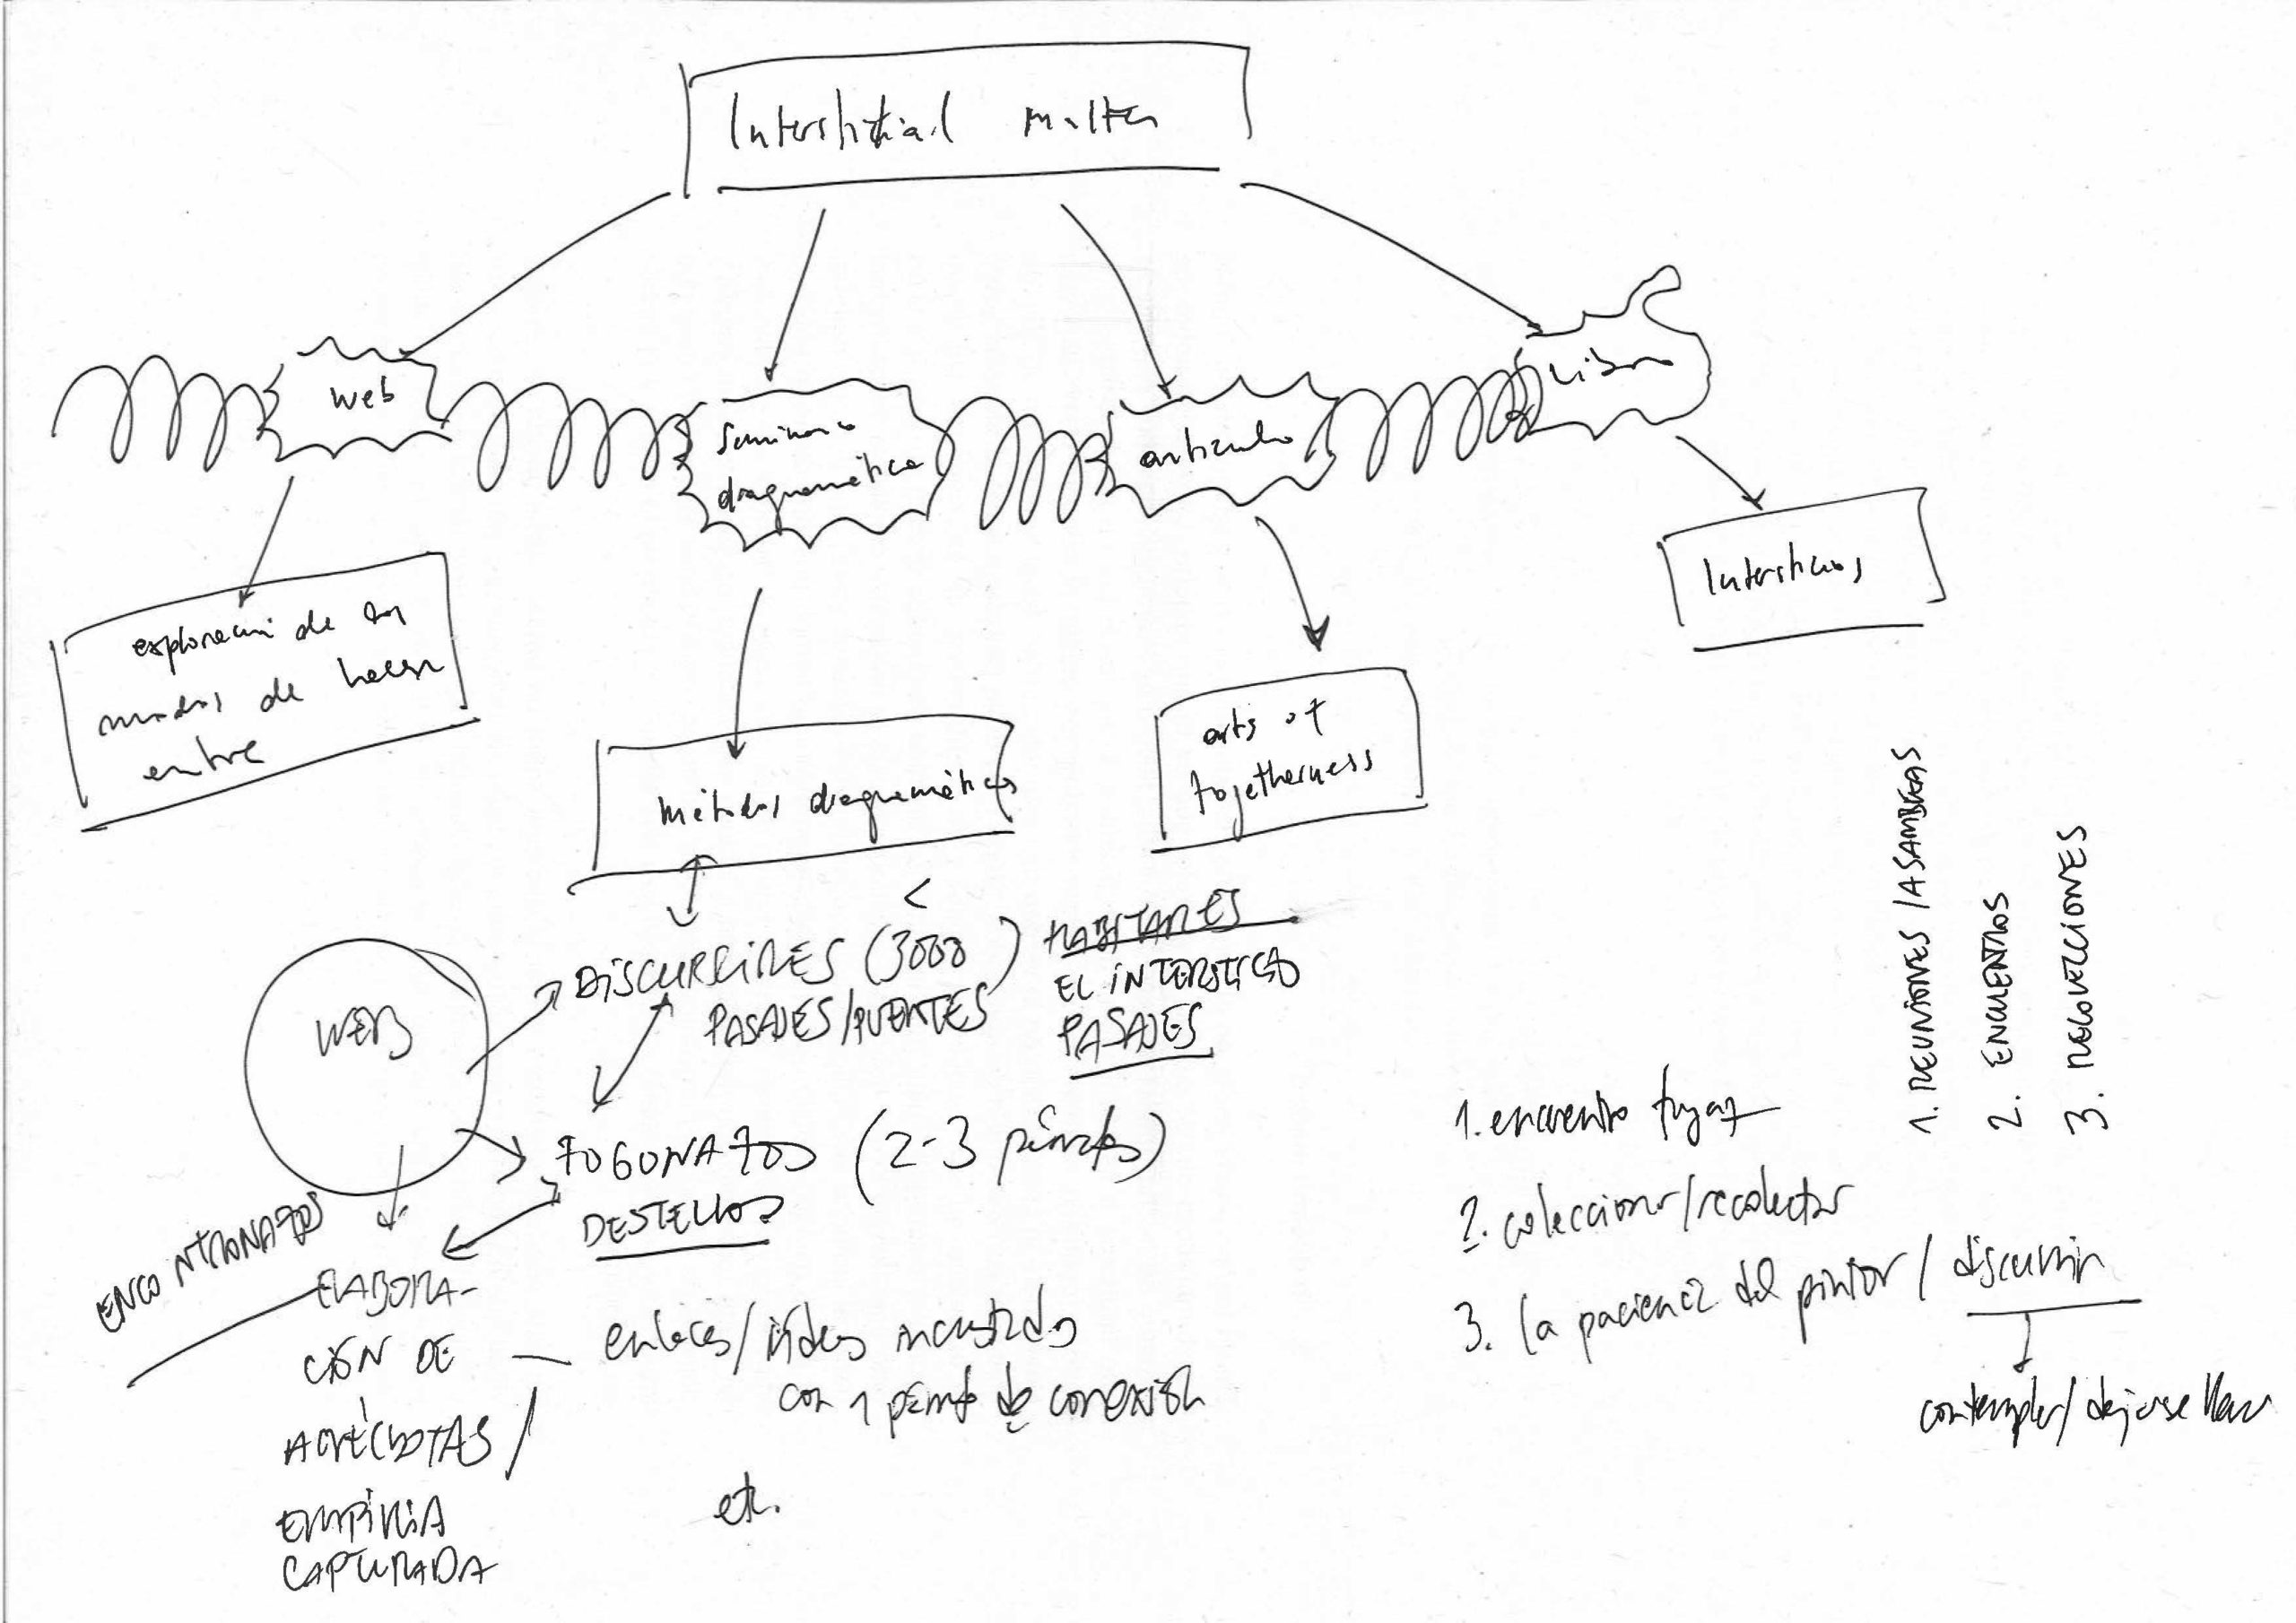 Interstitial matter
web
seminario
diagramático
artículo
Libro
exploración de los
modos de hacer
entre
métodos diagramáticos
arts of
togetherness
Intersticios
<
DISCURRIRES (3000)
PASAJES/PUENTES
HABITARES
EL INTERSTICIO
PASAJES
WEB
FOGONAZOS (2-3 párrafos)
DESTELLOS
ENCONTRONAZOS
ELABORA-
CIÓN DE
ANÉCDOTAS/
EMPIRIA
CAPTURADA
enlaces/vídeos incrustados
con 1 párrafo de conexión
etc.
1. encuentro fugaz
2. coleccionar/recolectar
3. la paciencia del pintor/discurrir
contemplar/dejarse llevar
1. REUNIONES/ASAMBLEAS
2. ENCUENTROS
3. RECOLECCIONES